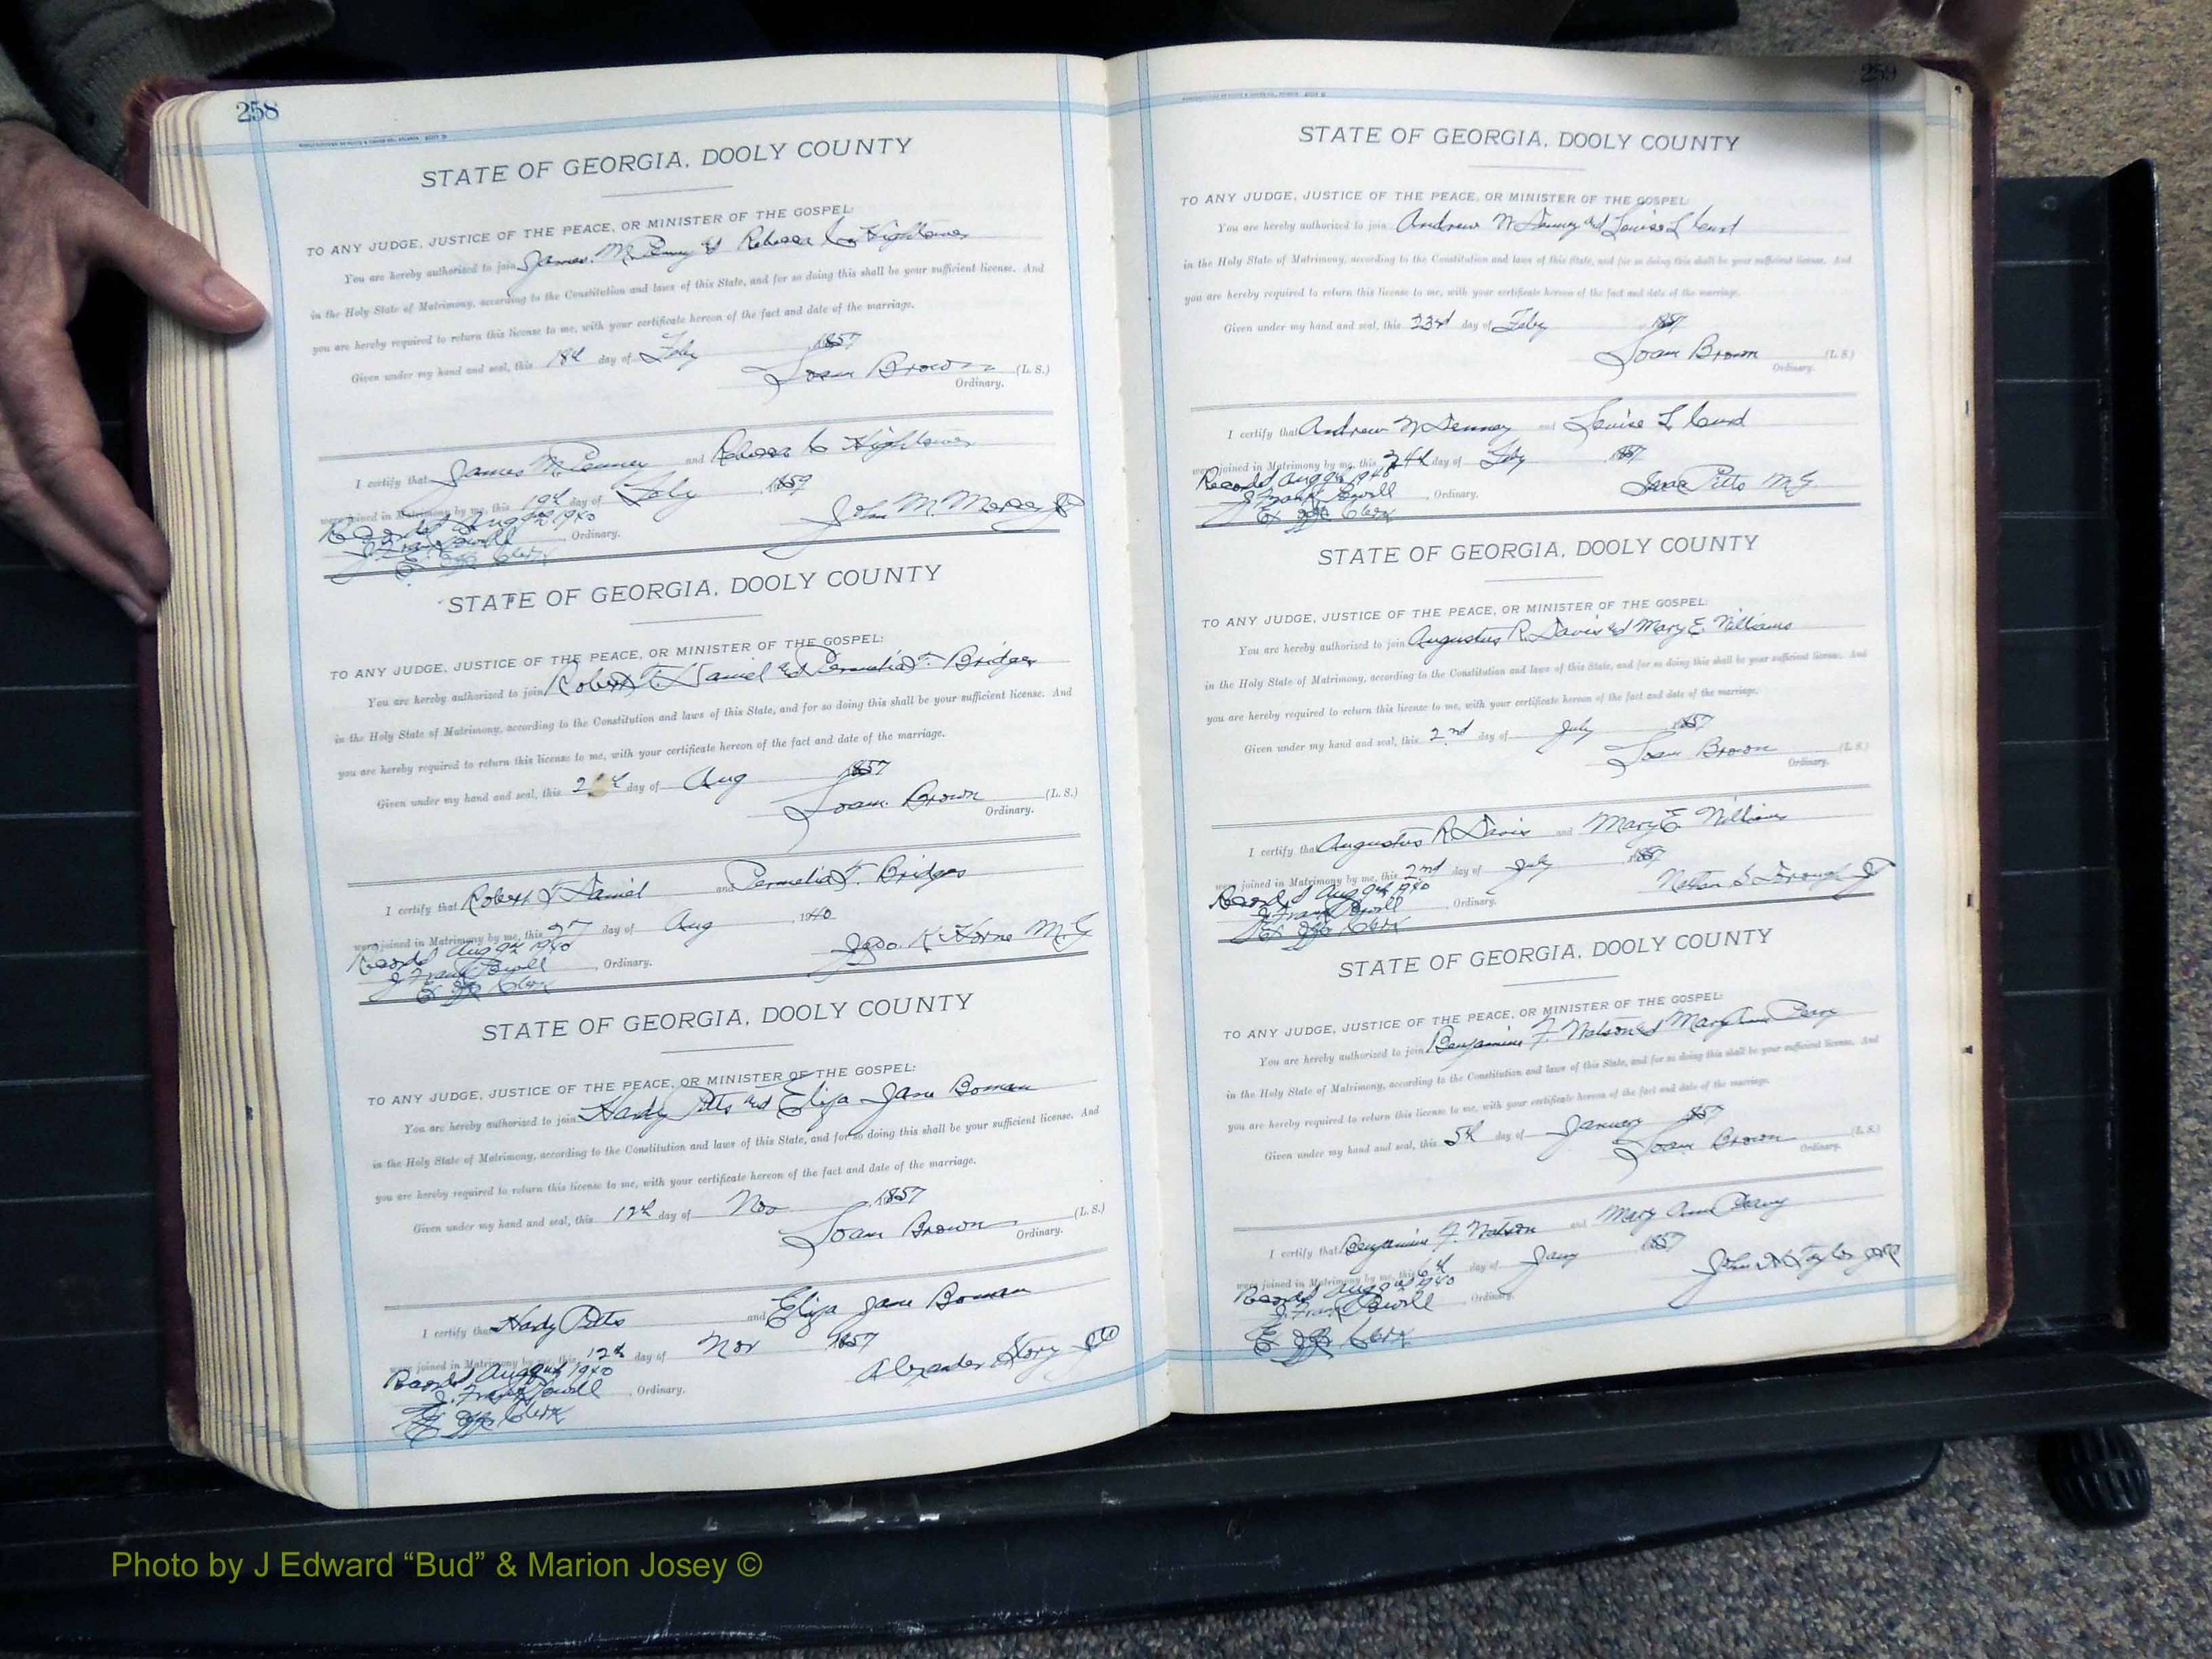 258
STATE OF GEORGIA, DOOLY COUNTY
TO ANY JUDGE, JUSTICE OF THE PEACE, OR MINISTER OF THE GOSPEL:
You are hereby authorized to join James M. Penny & Rebecca Hightower
in the Holy State of Matrimony, according to the Constitution and laws of this State, and for so doing this shall be your sufficient license. And
you are hereby required to return this license to me, with your certificate hereon of the fact and date of the marriage.
Given under my hand and seal, this 18th day of Feby 1857
Brown (L. S.)
Ordinary.
I certify that James M. Penney and Rebecca Hightower
were joined in Matrimony by me, this 19th day of Feby
John M.
Recorded Aug 9th 1940
J. Frank Powell, Ordinary.
Ex Off Clerk
STATE OF GEORGIA, DOOLY COUNTY
TO ANY JUDGE, JUSTICE OF THE PEACE, OR MINISTER OF THE GOSPEL:
You are hereby authorized to join Robert F. Daniel and Permelia F. Bridges
in the Holy State of Matrimony, according to the Constitution and laws of this State, and for so doing this shall be your sufficient license. And
you are hereby required to return this license to me, with your certificate hereon of the fact and date of the marriage.
Given under my hand and seal, this day of Aug 1857
Brown (L. S.)
Ordinary.
I certify that Robert F Daniel and Permelia F. Bridges
were joined in Matrimony by me, this 27 day of Aug 1940
K Horne M. G
Recorded Aug 9th 1940
J Frank Powell, Ordinary.
Ex Off Clerk
STATE OF GEORGIA, DOOLY COUNTY
TO ANY JUDGE, JUSTICE OF THE PEACE, OR MINISTER OF THE GOSPEL:
You are hereby authorized to join Hardy Pitts and Eliza Jane Boman
in the Holy State of Matrimony, according to the Constitution and laws of this State, and for so doing this shall be your sufficient license. And
you are hereby required to return this license to me, with your certificate hereon of the fact and date of the marriage.
Given under my hand and seal, this 12th day of Nov 1857
Brown (L. S.)
Ordinary.
I certify that Hardy Pitts and Eliza Jane Boman
were joined in Matrimony by me, this 12th day of Nov 1857
Alexander Story JP
Recorded Aug 9th 1940
J. Frank Powell, Ordinary.
Ex Off Clerk
259
STATE OF GEORGIA, DOOLY COUNTY
TO ANY JUDGE, JUSTICE OF THE PEACE, OR MINISTER OF THE GOSPEL:
You are hereby authorized to join Andrew and Louisa L
in the Holy State of Matrimony, according to the Constitution and laws of this State, and for so doing this shall be your sufficient license. And
you are hereby required to return this license to me, with your certificate hereon of the fact and date of the marriage.
Given under my hand and seal, this 23rd day of Feby 1857
Brown (L. S.)
Ordinary.
I certify that Andrew and Louise L
were joined in Matrimony by me, this 24th day of Feby 1857
Pitts M. G.
Recorded Aug 9th 1940
J Frank Powell, Ordinary.
Ex Off Clerk
STATE OF GEORGIA, DOOLY COUNTY
TO ANY JUDGE, JUSTICE OF THE PEACE, OR MINISTER OF THE GOSPEL:
You are hereby authorized to join Augustus R. Davis and Mary E. Williams
in the Holy State of Matrimony, according to the Constitution and laws of this State, and for so doing this shall be your sufficient license. And
you are hereby required to return this license to me, with your certificate hereon of the fact and date of the marriage.
Given under my hand and seal, this 2nd day of July 1857
Brown (L. S.)
Ordinary.
I certify that Augustus R Davis and Mary E Williams
were joined in Matrimony by me, this 2nd day of July 1857
Recorded Aug 9th 1940
J Frank Powell, Ordinary.
Ex Off Clerk
STATE OF GEORGIA, DOOLY COUNTY
TO ANY JUDGE, JUSTICE OF THE PEACE, OR MINISTER OF THE GOSPEL:
You are hereby authorized to join Benjamine F. Watson and Mary Ann
in the Holy State of Matrimony, according to the Constitution and laws of this State, and for so doing this shall be your sufficient license. And
you are hereby required to return this license to me, with your certificate hereon of the fact and date of the marriage.
Given under my hand and seal, this 5th day of January 1857
Brown (L. S.)
Ordinary.
I certify that Benjamine F. Watson and Mary Ann
were joined in Matrimony by me, this 6th day of Jany 1857
John Taylor
Recorded Aug 9th 1940
J Frank Powell, Ordinary.
Ex Off Clerk
Photo by J Edward “Bud” & Marion Josey ©